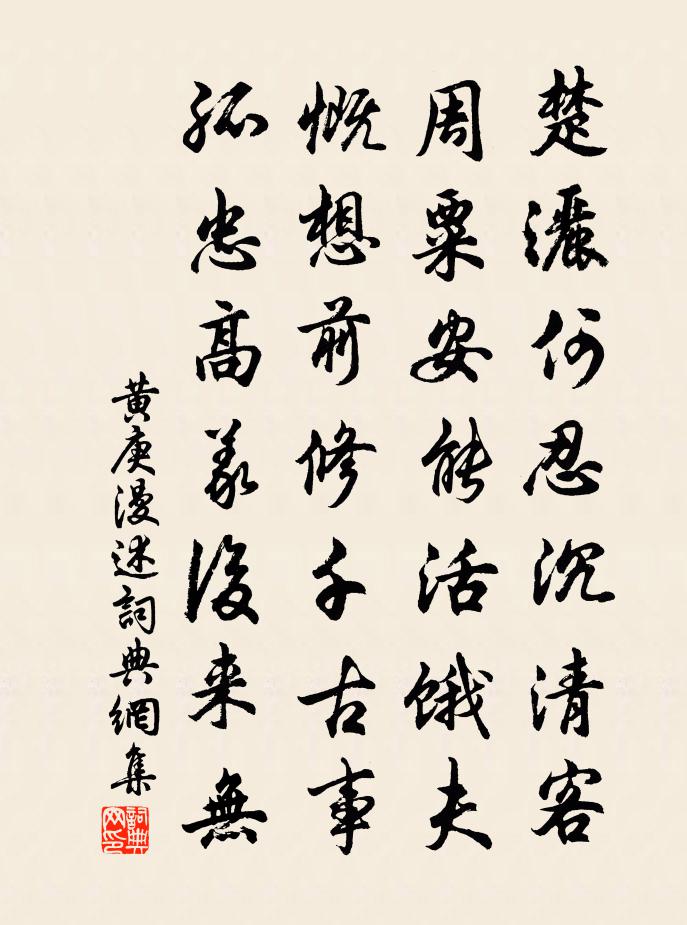 楚灑何忍沉清客
周粟安能活饿夫
慨想前修千古事
孤忠高義後来無
黄庚漫述詞典網集
詞典网印